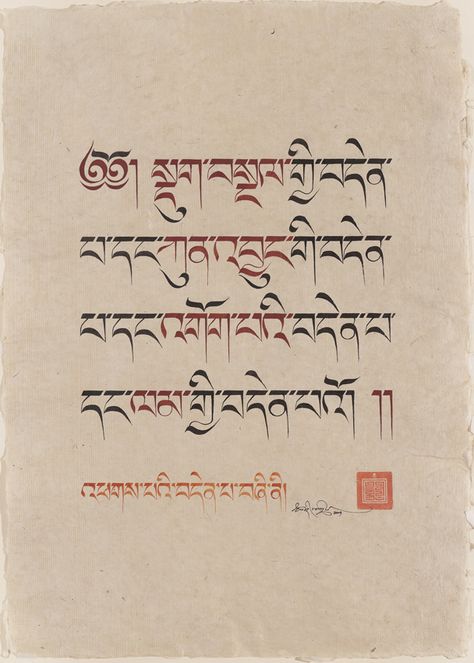 ༄༅། སྡུག་བསྔལ་གྱི་བདེན་
པ་དང་ཀུན་འབྱུང་གི་བདེན་
པ་དང་འགོག་པའི་བདེན་པ་
དང་ལམ་གྱི་བདེན་པའོ །།
འཕགས་པའི་བདེན་པ་བཞི་ནི།